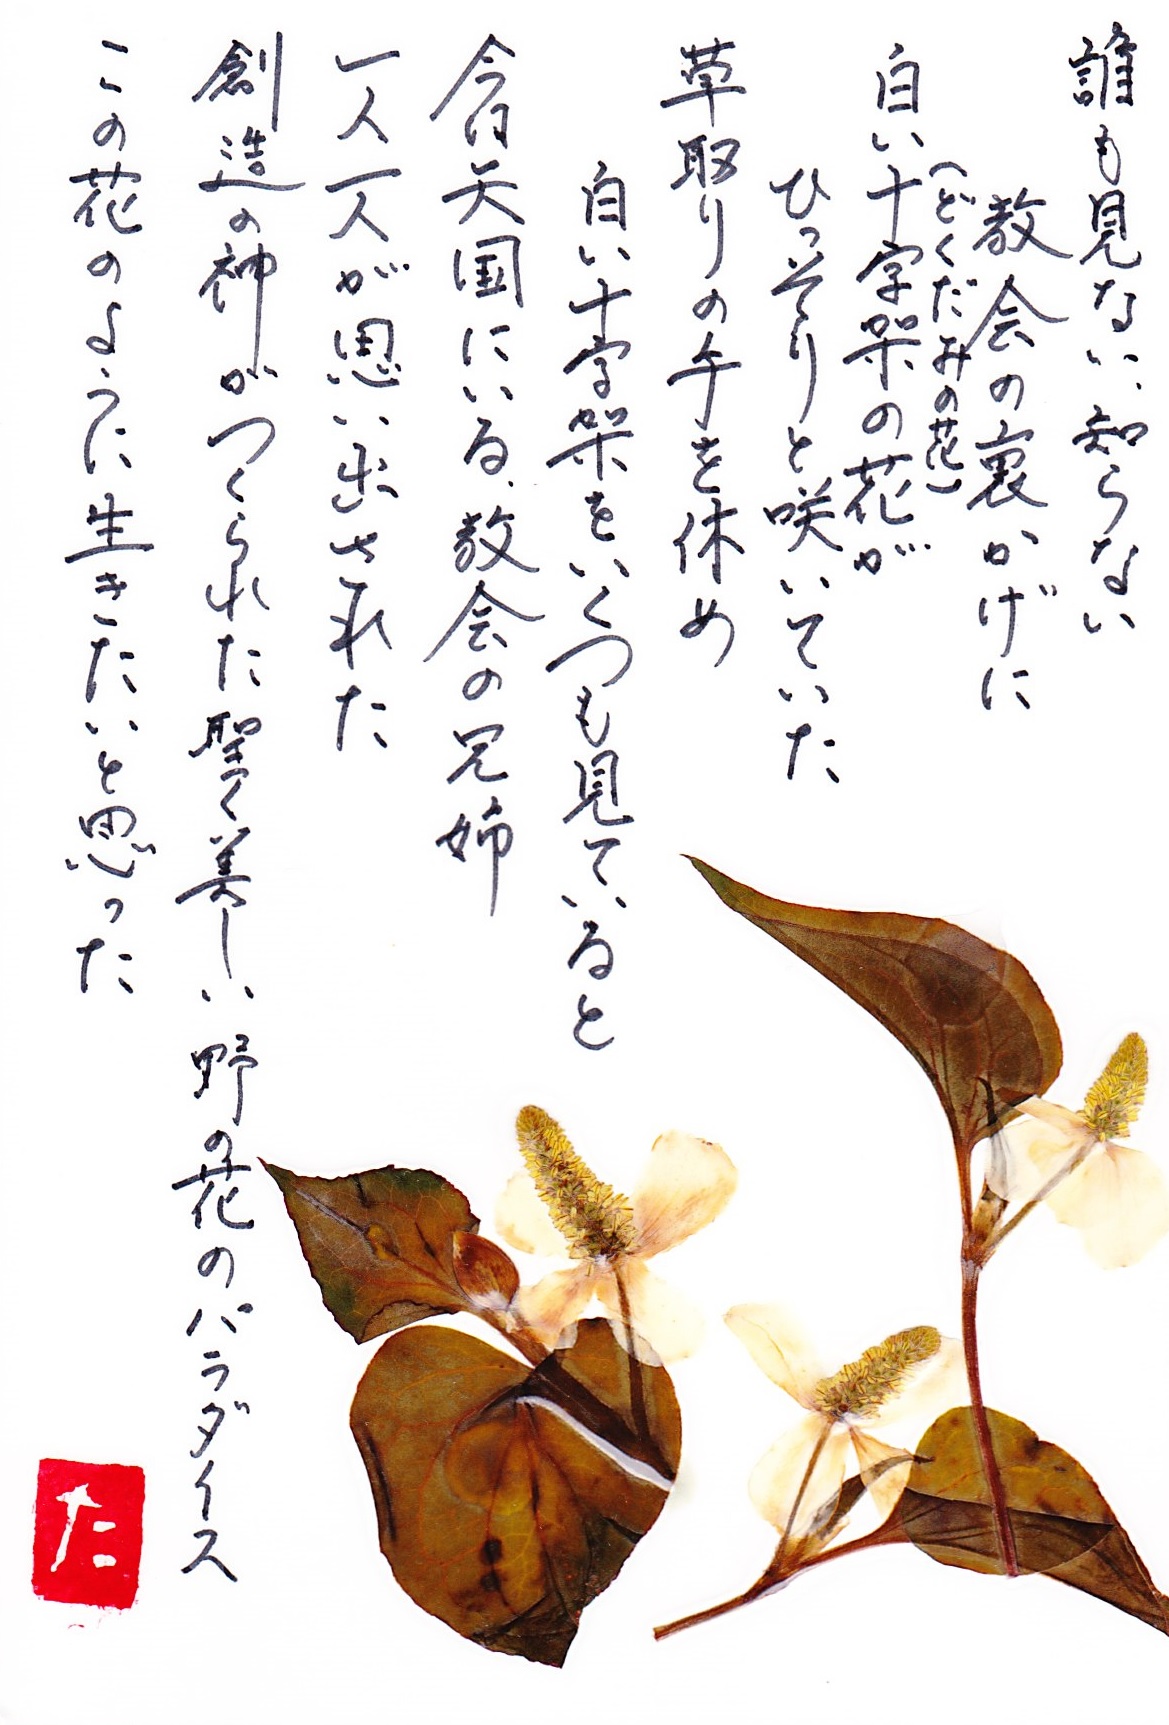 誰も見ない、知らない
教会の裏かげに
(どくだみの花)
白い十字架の花が
ひっそりと咲いていた
草取りの手を休め
白い十字架をいくつも見ていると
今は天国にいる、教会の兄姉
一人一人が思い出された
創造の神がつくられた聖く美しい野の花のパラダイス
この花のように生きたいと思った
た